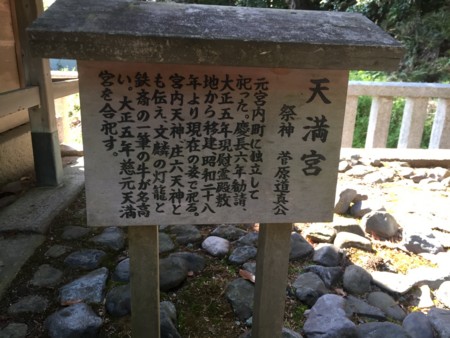 天満宮
祭神 菅原道真公
元宮内町に独立して
祀った。慶長六年勧請.
大正五年現慰霊殿敷
地から移建.昭和二十八
年より現在の姿で祀る。
宮内天神.庄六天神と
も伝え、文麟の灯籠と
鉄斎の一筆の牛が名高
い。大正五年、慈元天満
宮を合祀す。